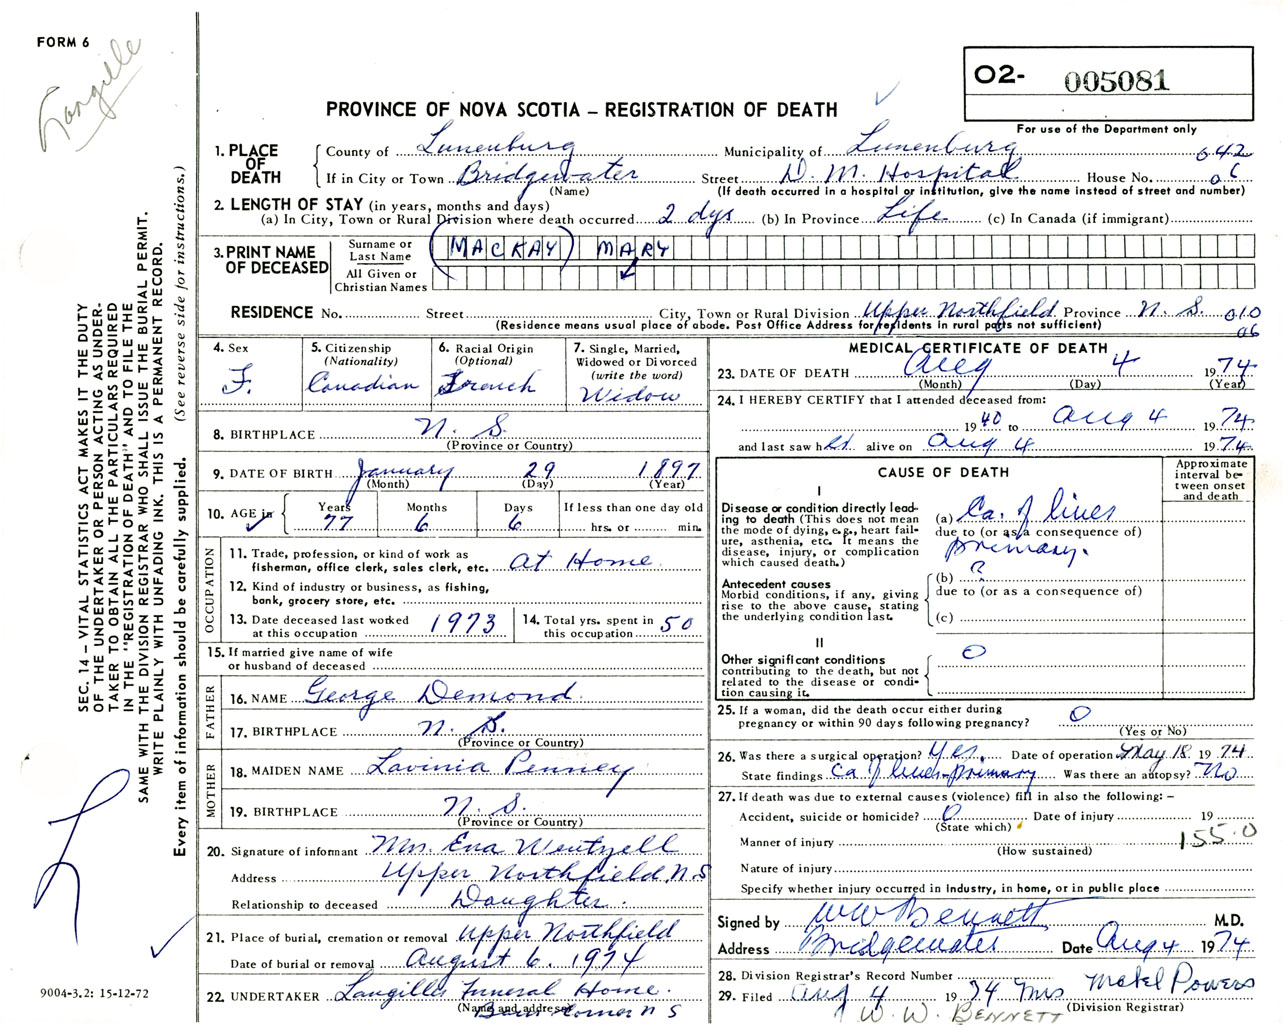 FORM 6
Langille
O2- 005081
PROVINCE OF NOVA SCOTIA – REGISTRATION OF DEATH
For use of the Department only
1. PLACE OF DEATH
County of Lunenburg Municipality of Lunenburg 042
If in City or Town Bridgewater Street D. M. Hospital House No. 06
(Name) (If death occurred in a hospital or institution, give the name instead of street and number)
2. LENGTH OF STAY (in years, months and days)
(a) In City, Town or Rural Division where death occurred 2 dys (b) In Province Life (c) In Canada (if immigrant)
3. PRINT NAME OF DECEASED
Surname or Last Name (MACKAY) MARY
All Given or Christian Names
RESIDENCE No. Street City, Town or Rural Division Upper Northfield Province N. S. 010
(Residence means usual place of abode. Post Office Address for residents in rural parts not sufficient) 06
4. Sex
F.
5. Citizenship
(Nationality)
Canadian
6. Racial Origin
(Optional)
French
7. Single, Married,
Widowed or Divorced
(write the word)
Widow
8. BIRTHPLACE N. S.
(Province or Country)
9. DATE OF BIRTH January 29 1897
(Month) (Day) (Year)
10. AGE in
Years Months Days If less than one day old
77 6 6 hrs. or min.
OCCUPATION
11. Trade, profession, or kind of work as
fisherman, office clerk, sales clerk, etc. At Home
12. Kind of industry or business, as fishing,
bank, grocery store, etc.
13. Date deceased last worked
at this occupation 1973
14. Total yrs. spent in
this occupation 50
15. If married give name of wife
or husband of deceased
FATHER
16. NAME George Demond
17. BIRTHPLACE N. S.
(Province or Country)
MOTHER
18. MAIDEN NAME Lavinia Penney
19. BIRTHPLACE N. S.
(Province or Country)
20. Signature of informant Mrs. Eva Wentzell
Address Upper Northfield, N S
Relationship to deceased Daughter.
21. Place of burial, cremation or removal Upper Northfield
Date of burial or removal August 6, 1974
22. UNDERTAKER Langilles Funeral Home.
(Name and address) Corner N S
MEDICAL CERTIFICATE OF DEATH
23. DATE OF DEATH Aug 4 1974
(Month) (Day) (Year)
24. I HEREBY CERTIFY that I attended deceased from:
1940 to Aug 4 1974
and last saw her alive on Aug 4 1974
CAUSE OF DEATH
Approximate
interval be-
tween onset
and death
I
Disease or condition directly lead-
ing to death (This does not mean
the mode of dying, e.g., heart fail-
ure, asthenia, etc. It means the
disease, injury, or complication
which caused death.)
(a) Ca. of liver
due to (or as a consequence of)
primary.
Antecedent causes
Morbid conditions, if any, giving
rise to the above cause, stating
the underlying condition last.
(b) ?
due to (or as a consequence of)
(c)
II
Other significant conditions
contributing to the death, but not
related to the disease or condi-
tion causing it.
O
25. If a woman, did the death occur either during
pregnancy or within 90 days following pregnancy? O
(Yes or No)
26. Was there a surgical operation? Yes. Date of operation May 18 1974
State findings Ca of liver - primary Was there an autopsy? No
27. If death was due to external causes (violence) fill in also the following: –
Accident, suicide or homicide? O Date of injury 19
(State which)
Manner of injury 155.0
(How sustained)
Nature of injury
Specify whether injury occurred in Industry, in home, or in public place
Signed by W W Bennett M.D.
Address Bridgewater Date Aug 4 1974
28. Division Registrar's Record Number
29. Filed Aug 4 1974 Mrs Mabel Powers
(Division Registrar)
W. W. BENNETT
SEC. 14 – VITAL STATISTICS ACT MAKES IT THE DUTY
OF THE UNDERTAKER OR PERSON ACTING AS UNDER-
TAKER TO OBTAIN ALL THE PARTICULARS REQUIRED
IN THE "REGISTRATION OF DEATH" AND TO FILE THE
SAME WITH THE DIVISION REGISTRAR WHO SHALL ISSUE THE BURIAL PERMIT.
WRITE PLAINLY WITH UNFADING INK. THIS IS A PERMANENT RECORD.
Every item of information should be carefully supplied. (See reverse side for instructions.)
L
9004-3.2: 15-12-72